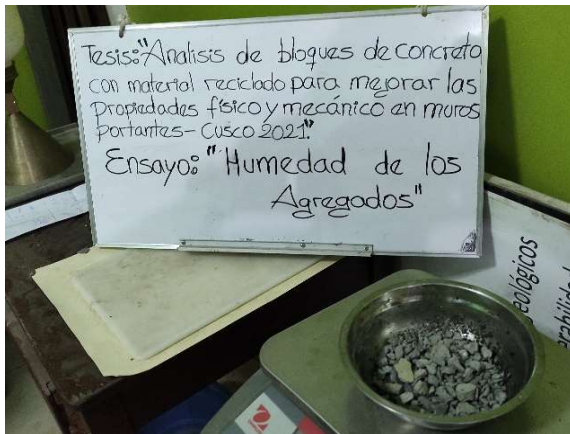 Tesis:"Analisis de bloques de concreto
con material reciclado para mejorar las
Propiedades físico y mecánico en muros
portantes- Cusco 2021."
Ensayo:"Humedad de los
Agregados"
eológicos